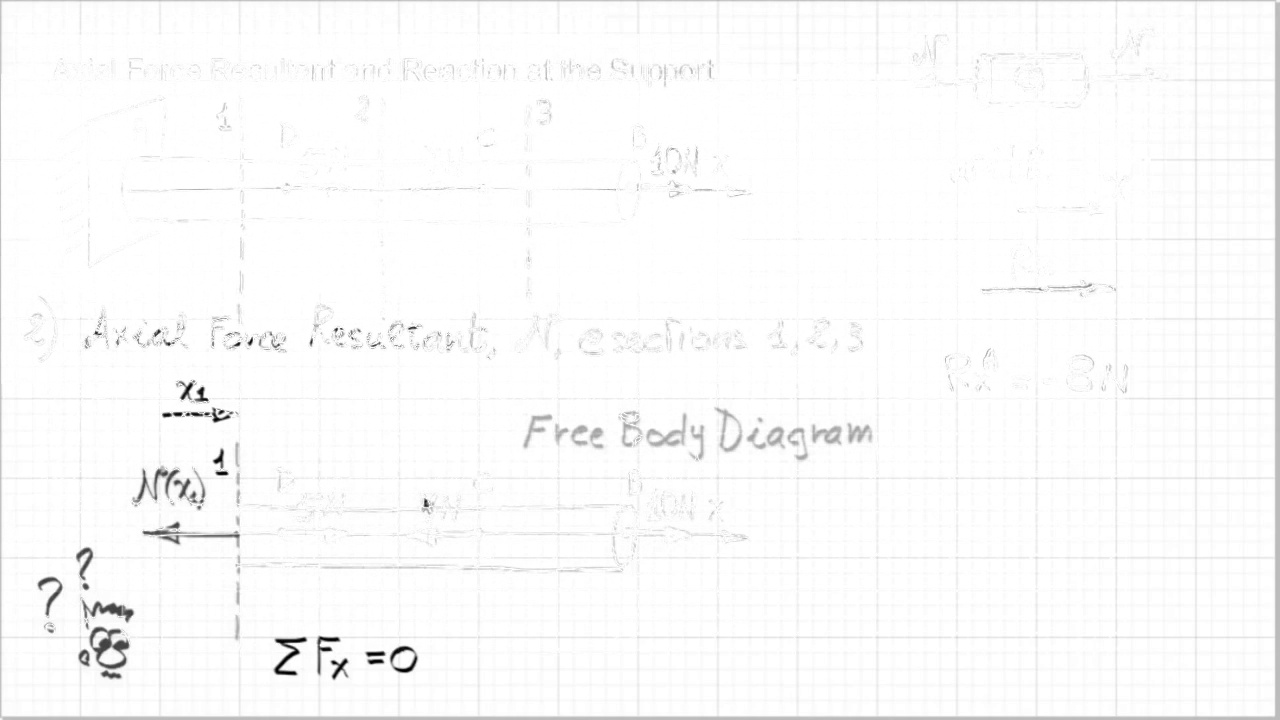 Axial Force Resultant and Reaction at the Support
N N
1 2 3
D C B 10N x
2) Axial Force Resultant, N, @ sections 1, 2, 3
= -8N
x1
Free Body Diagram
1
N(x1)
D C B
10N x
? ?
ΣFx = 0